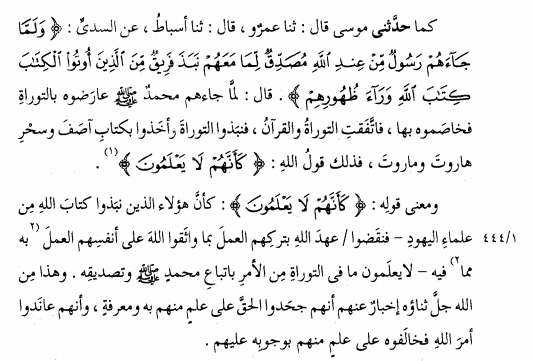 كما حدَّثنى موسى قال : ثنا عمرٌو ، قال : ثنا أسباطُ ، عن السدىِّ : ﴿ وَلَمَّا
جَآءَهُمْ رَسُولٌ مِّنْ عِندِ ٱللَّهِ مُصَدِّقٌ لِّمَا مَعَهُمْ نَبَذَ فَرِيقٌ مِّنَ ٱلَّذِينَ أُوتُوا۟ ٱلْكِتَٰبَ
كِتَٰبَ ٱللَّهِ وَرَآءَ ظُهُورِهِمْ ﴾ . قال : لمَّا جاءهم محمدٌ ﷺ عارَضوه بالتوراةِ
فخاصَموه بها ، فاتَّفَقتِ التوراةُ والقرآنُ ، فنبَذوا التوراةَ وأخَذوا بكتابِ آصَفَ وسحْرِ
هاروتَ وماروتَ ، فذلك قولُ اللهِ : ﴿ كَأَنَّهُمْ لَا يَعْلَمُونَ ﴾(١) .
ومعنى قولِه : ﴿ كَأَنَّهُمْ لَا يَعْلَمُونَ ﴾ : كأنَّ هؤلاء الذين نبَذوا كتابَ اللهِ مِن
٤٤٤/١ علماءِ اليهودِ – فنقَضوا / عهدَ اللهِ بتركِهم العملَ بما واثَقوا اللهَ على أنفسِهم العملَ (٢به
مما٢) فيه – لايعلَمون ما فى التوراةِ مِن الأمرِ باتباعِ محمدٍ ﷺ وتصديقِه . وهذا مِن
الله جلَّ ثناؤه إخبارٌ عنهم أنهم جحَدوا الحقَّ على علمٍ منهم به ومعرفةٍ ، وأنهم عانَدوا
أمرَ اللهِ فخالَفوه على علمٍ منهم بوجوبِه عليهم .